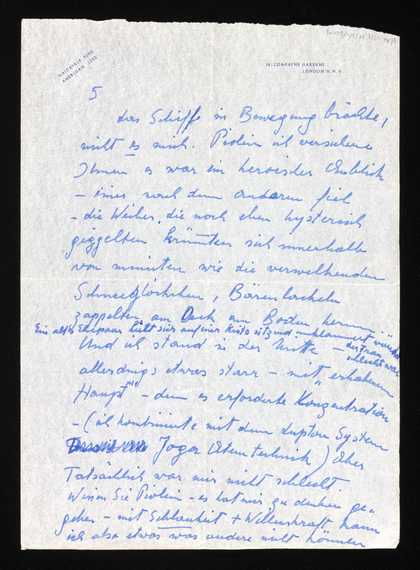 LONDON N.W.3
5
das Schiff in Bewegung brächte,
nütt es nich. Piolin ich versichere
Ihnen es war ein heroischer Anblick
– einer nach dem anderen fiel
– die Weiber, die noch eben hysterisch
giggelten krümmten sich innerhalb
von minuten wie die verwelkenden
Schneeglöckchen,
zappelten am Deck am Boden herum
Ein altes Ehepaar sitzend
Und ich stand in der Mitte –
allerdings etwas starr – mit "erhobenem
Haupt" – denn es erforderte Konzentration
– (ich kombinierte mit dem System
Joga Atemtechnik) Aber
Tatsächlich war mir nicht schlecht.
Wissen Sie Piolin – es hat mir zu denken ge-
geben – mit Schlauheit + Willenskraft kann
ich also etwas was andere nicht können